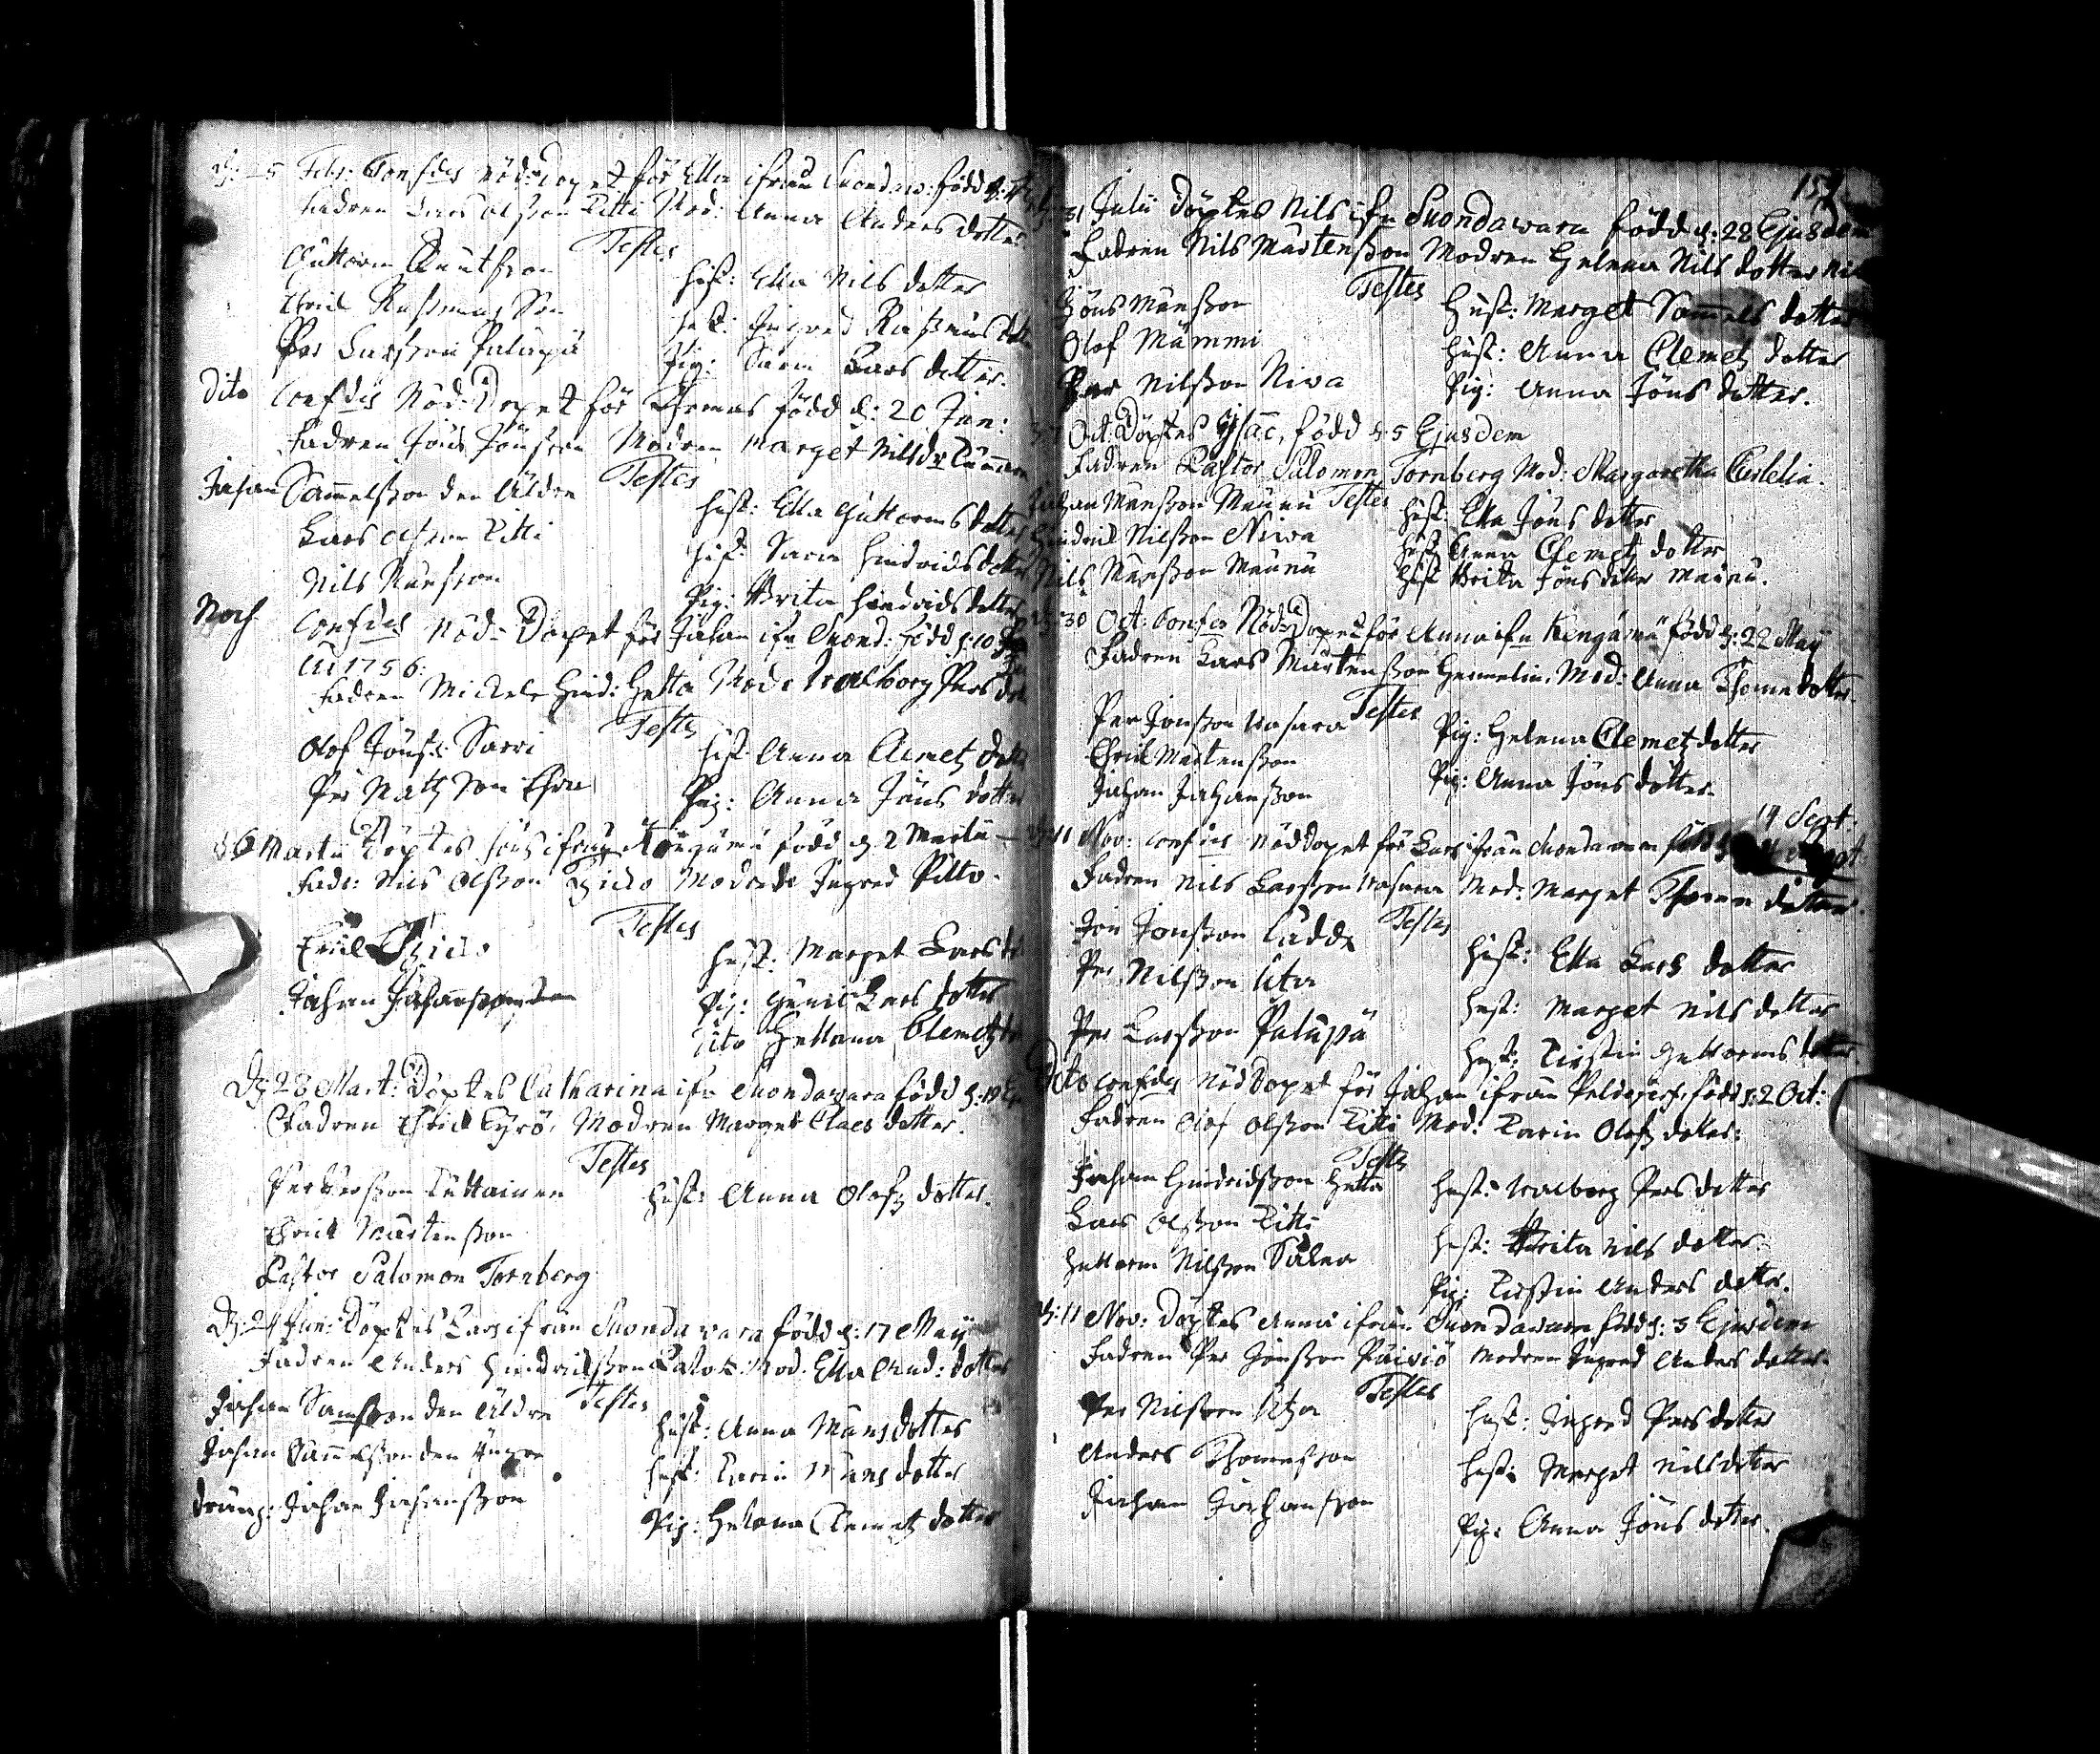 Febr: Confdes nöd-dopet för Ella ifrån Suondaw: född
Fadren Lars Olsson Kitti Mod: Anna Anders dotter
Testes
Guttorm Knutsson Hust: Ella Nils dotter
Erick Rasmus Son Hust: Ingred Rasmus
Per Larsson Palupä Pig: Karin Lars dotter.
Dito Confdes Nöd-Dopet för Thomas född d: 20 Jan:
Fadren Jöns Jönsson Modren Marget Nilsdr
Testes
Johan Samuelsson den Äldre Hust: Ella Guttorms dotter
Lars Olsson Kitti Hust: Karin Hindrichs dotter
Nils Månsson Pig: Brita Hindrichs dotter
Noch Confdes Nöd-Dopet för Johan ifr Suond: född d: 10
A: 1756.
Fadren Mickel Hind: Hetta Mod: Walborg Pers
Testes
Olof Jönss: Sarri Hust: Anna Clemetz dott
Per Matz Son Pig: Anna Jöns dotter
Martii Döptes Jöns ifrån Köngämä född d: 2 Martii
Fadr: Nils Olsson Modr: Ingred Pilto.
Testes
Erick Hust: Marget Lars
Johan Johansson Pig: Gunil Lars dotter
Dito Hellena Clemetz
D: 28 Mart: Döptes Catharina ifr Suondawara född d:
Fadren Erick Kyrö, Modren Marget Claes dotter.
Testes
Per Persson Kuttainen Hust: Anna Olofz dotter.
Erick Mårtensson
Pastor Salomon Tornberg
D: 24 Jun: Döptes Lars ifrån Suondawara född d: 17 Maij
Fadren Anders Hindrichsson Mod. Ella And: dotter
Testes
Johan Samsson den Äldre Hust: Anna Måns dotter
Johan Samuelsson den Yngre Hust: Karin Måns dotter
dräng: Johan Johansson Pig: Helena Clemetz dotter
157
31 Julii Döptes Nils ifr Suondawara född d: 28 Ejusdem
Fadren Nils Mårtensson Modren Helena Nils dotter
Testes
Jöns Månsson Hust: Marget Samuels dotter
Olof Mämmi Hust: Anna Clemetz dotter
Per Nilsson Niva Pig: Anna Jöns dotter.
Oct: Döptes Isac, född d: 5 Ejusdem
Fadren Pastor Salomon Tornberg Mod: Margaretha Curtelia.
Johan Månsson Maunu Testes Hust: Ella Jöns dotter
Hindrick Nilsson Niva Hust Anna Clemetz dotter
Nils Månsson Maunu Hust Brita Jöns dotter Maunu.
D: 30 Oct: Confdes Nöd-Dopet för Anna ifr Kengämä född d: 22 Maij
Fadren Lars Mårtensson Hermelin, Mod: Anna Thomedotter.
Testes
Per Jönsson Wasara Pig: Helena Clemetz dotter
Erick Mårtensson Pig: Anna Jöns dotter.
Johan Johansson
14 Sept:
D: 11 Nov: Confdes nöddopet för Lars ifrån Suondawara född d:
Fadren Nils Larsson Wasara Mod: Marget Thomæ dotter.
Testes
Jon Jonsson Ladde Hust: Ella Lars dotter
Per Nilsson Utza Hust: Marget Nils dotter
Per Larsson Palupä Hust: Kirstin Guttorms dotter
Dito Confdes nöddopet för Johan ifrån Peldojerf, född d: 2 Oct:
Fadren Olof Olsson Kitti Mod: Karin Olofz dotter:
Testes
Johan Hindrichsson Hetta Hust: Walborg Pers dotter
Lars Olsson Kitti Hust: Brita Nils dotter.
Guttorm Nilsson Pig: Kirstin Anders dotter.
D: 11 Nov: Döptes Anna ifrån Suondawara född d: 3 Ejusdem
Fadren Per Jönsson Päiviö Modren Ingred Anders dotter.
Testes
Per Nilsson Utza Hust: Ingred Pers dotter
Anders Thomasson Hust: Marget Nils dotter
Johan Johansson Pig: Anna Jöns dotter.